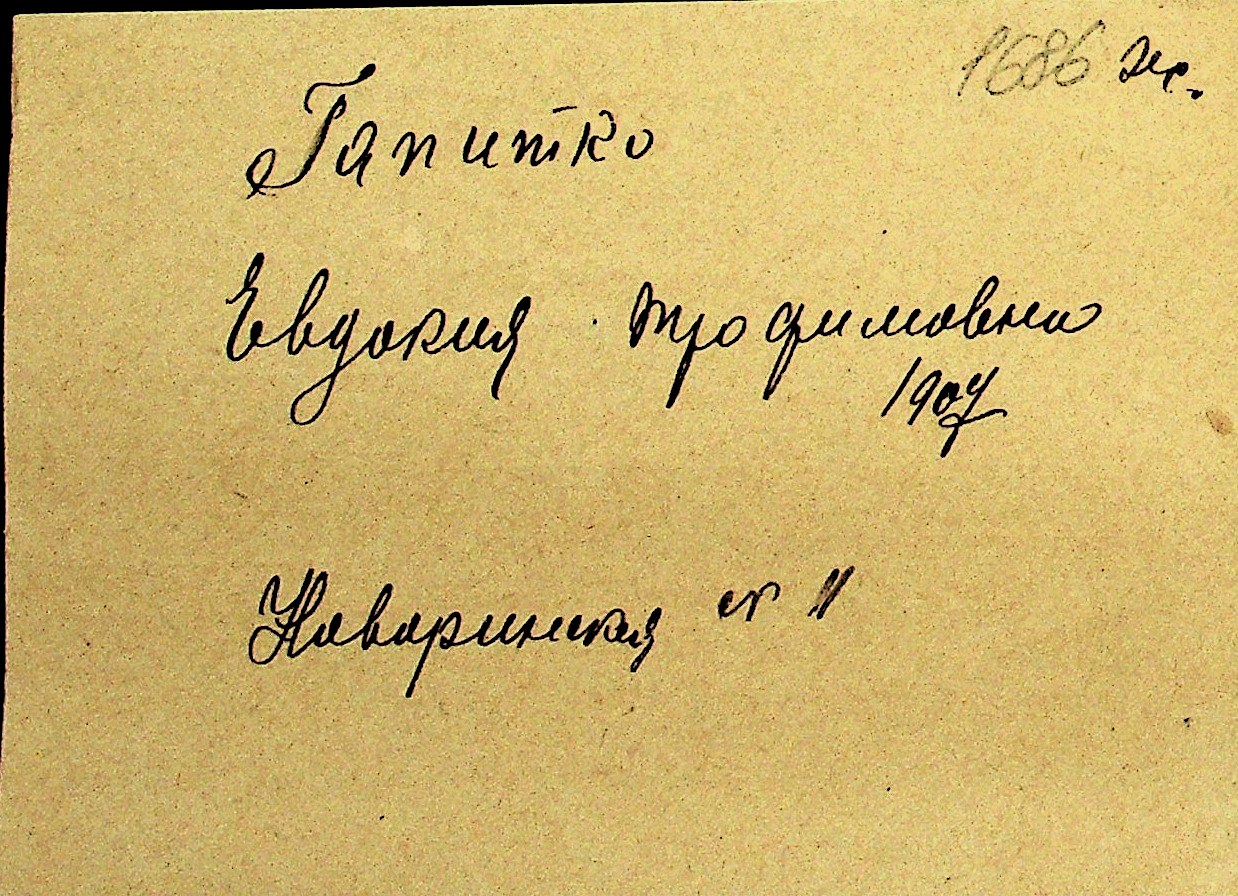 1686 эк.
Гапитко
Евдокия Трофимовна
1907
Наваринская № 11